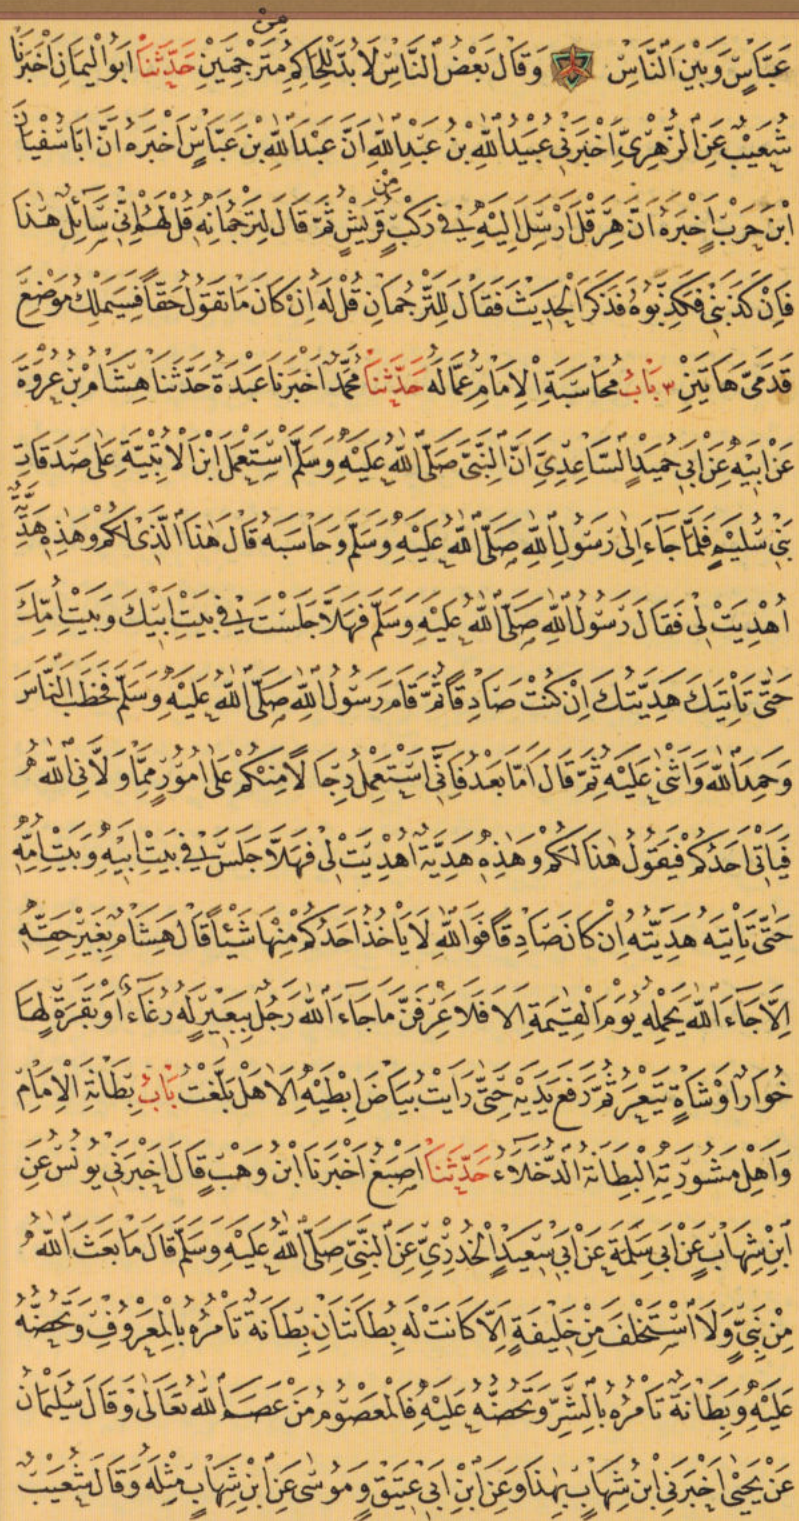 عَبَّاسٍ وَبَيْنَ النَّاسِ وَقَالَ بَعْضُ النَّاسِ لَا بُدَّ لِلْحَاكِمِ مِنْ مُتَرْجِمِينَ حَدَّثَنَا اَبُو الْيَمَانِ اَخْبَرَنَا
شُعَيْبٌ عَنِ الزُّهْرِىِّ اَخْبَرَنِى عُبَيْدُ اللّٰهِ بْنُ عَبْدِ اللّٰهِ اَنَّ عَبْدَ اللّٰهِ بْنَ عَبَّاسٍ اَخْبَرَهُ اَنَّ اَبَا سُفْيَانَ
ابْنَ حَرْبٍ اَخْبَرَهُ اَنَّ هِرَقْلَ اَرْسَلَ اِلَيْهِ فِى رَكْبٍ مِنْ قُرَيْشٍ ثُمَّ قَالَ لِتَرْجُمَانِهِ قُلْ لَهُمْ اِنِّى سَائِلٌ هٰذَا
فَاِنْ كَذَبَنِى فَكَذِّبُوهُ فَذَكَرَ الْحَدِيثَ فَقَالَ لِلتَّرْجُمَانِ قُلْ لَهُ اِنْ كَانَ مَا تَقُولُ حَقًّا فَسَيَمْلِكُ مَوْضِعَ
قَدَمَىَّ هَاتَيْنِ ٣ بَابُ مُحَاسَبَةِ الْاِمَامِ عُمَّالَهُ حَدَّثَنَا مُحَمَّدٌ اَخْبَرَنَا عَبْدَةُ حَدَّثَنَا هِشَامُ بْنُ عُرْوَةَ
عَنْ اَبِيهِ عَنْ اَبِى حُمَيْدٍ السَّاعِدِىِّ اَنَّ النَّبِىَّ صَلَّى اللّٰهُ عَلَيْهِ وَسَلَّمَ اسْتَعْمَلَ ابْنَ الْاُتْبِيَّةِ عَلٰى صَدَقَاتِ
بَنِى سُلَيْمٍ فَلَمَّا جَاءَ اِلٰى رَسُولِ اللّٰهِ صَلَّى اللّٰهُ عَلَيْهِ وَسَلَّمَ وَحَاسَبَهُ قَالَ هٰذَا الَّذِى لَكُمْ وَهٰذِهِ هَدِيَّةٌ
اُهْدِيَتْ لِى فَقَالَ رَسُولُ اللّٰهِ صَلَّى اللّٰهُ عَلَيْهِ وَسَلَّمَ فَهَلَّا جَلَسْتَ فِى بَيْتِ اَبِيكَ وَبَيْتِ اُمِّكَ
حَتّٰى تَأْتِيَكَ هَدِيَّتُكَ اِنْ كُنْتَ صَادِقًا ثُمَّ قَامَ رَسُولُ اللّٰهِ صَلَّى اللّٰهُ عَلَيْهِ وَسَلَّمَ فَخَطَبَ النَّاسَ
وَحَمِدَ اللّٰهَ وَاَثْنٰى عَلَيْهِ ثُمَّ قَالَ اَمَّا بَعْدُ فَاِنِّى اَسْتَعْمِلُ رِجَالًا مِنْكُمْ عَلٰى اُمُورٍ مِمَّا وَلَّانِى اللّٰهُ
فَيَأْتِى اَحَدُكُمْ فَيَقُولُ هٰذَا لَكُمْ وَهٰذِهِ هَدِيَّةٌ اُهْدِيَتْ لِى فَهَلَّا جَلَسَ فِى بَيْتِ اَبِيهِ وَبَيْتِ اُمِّهِ
حَتّٰى تَأْتِيَهُ هَدِيَّتُهُ اِنْ كَانَ صَادِقًا فَوَاللّٰهِ لَا يَأْخُذُ اَحَدُكُمْ مِنْهَا شَيْئًا قَالَ هِشَامٌ بِغَيْرِ حَقِّهِ
اِلَّا جَاءَ اللّٰهَ يَحْمِلُهُ يَوْمَ الْقِيٰمَةِ اَلَا فَلَاَعْرِفَنَّ مَا جَاءَ اللّٰهَ رَجُلٌ بِبَعِيرٍ لَهُ رُغَاءٌ اَوْ بِبَقَرَةٍ لَهَا
خُوَارٌ اَوْ شَاةٍ تَيْعَرُ ثُمَّ رَفَعَ يَدَيْهِ حَتّٰى رَاَيْتُ بَيَاضَ اِبْطَيْهِ اَلَا هَلْ بَلَّغْتُ بَابُ بِطَانَةِ الْاِمَامِ
وَاَهْلِ مَشُورَتِهِ الْبِطَانَةُ الدُّخَلَاءُ حَدَّثَنَا اَصْبَغُ اَخْبَرَنَا ابْنُ وَهْبٍ قَالَ اَخْبَرَنِى يُونُسُ عَنِ
ابْنِ شِهَابٍ عَنْ اَبِى سَلَمَةَ عَنْ اَبِى سَعِيدٍ الْخُدْرِىِّ عَنِ النَّبِىِّ صَلَّى اللّٰهُ عَلَيْهِ وَسَلَّمَ قَالَ مَا بَعَثَ اللّٰهُ
مِنْ نَبِىٍّ وَلَا اسْتَخْلَفَ مِنْ خَلِيفَةٍ اِلَّا كَانَتْ لَهُ بِطَانَتَانِ بِطَانَةٌ تَأْمُرُهُ بِالْمَعْرُوفِ وَتَحُضُّهُ
عَلَيْهِ وَبِطَانَةٌ تَأْمُرُهُ بِالشَّرِّ وَتَحُضُّهُ عَلَيْهِ فَالْمَعْصُومُ مَنْ عَصَمَ اللّٰهُ تَعَالٰى وَقَالَ سُلَيْمَانُ
عَنْ يَحْيٰى اَخْبَرَنِى ابْنُ شِهَابٍ بِهٰذَا وَعَنِ ابْنِ اَبِى عَتِيقٍ وَمُوسٰى عَنِ ابْنِ شِهَابٍ مِثْلَهُ وَقَالَ شُعَيْبٌ